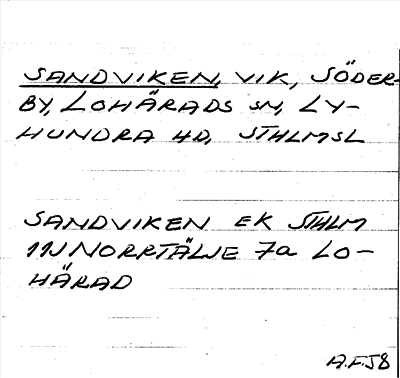 SANDVIKEN, VIK, SÖDER-
BY, LOHÄRADS SN, LY-
HUNDRA HD, STHLMSL
SANDVIKEN EK STHLM
11J NORRTÄLJE 7a LO-
HÄRAD
A.F.58